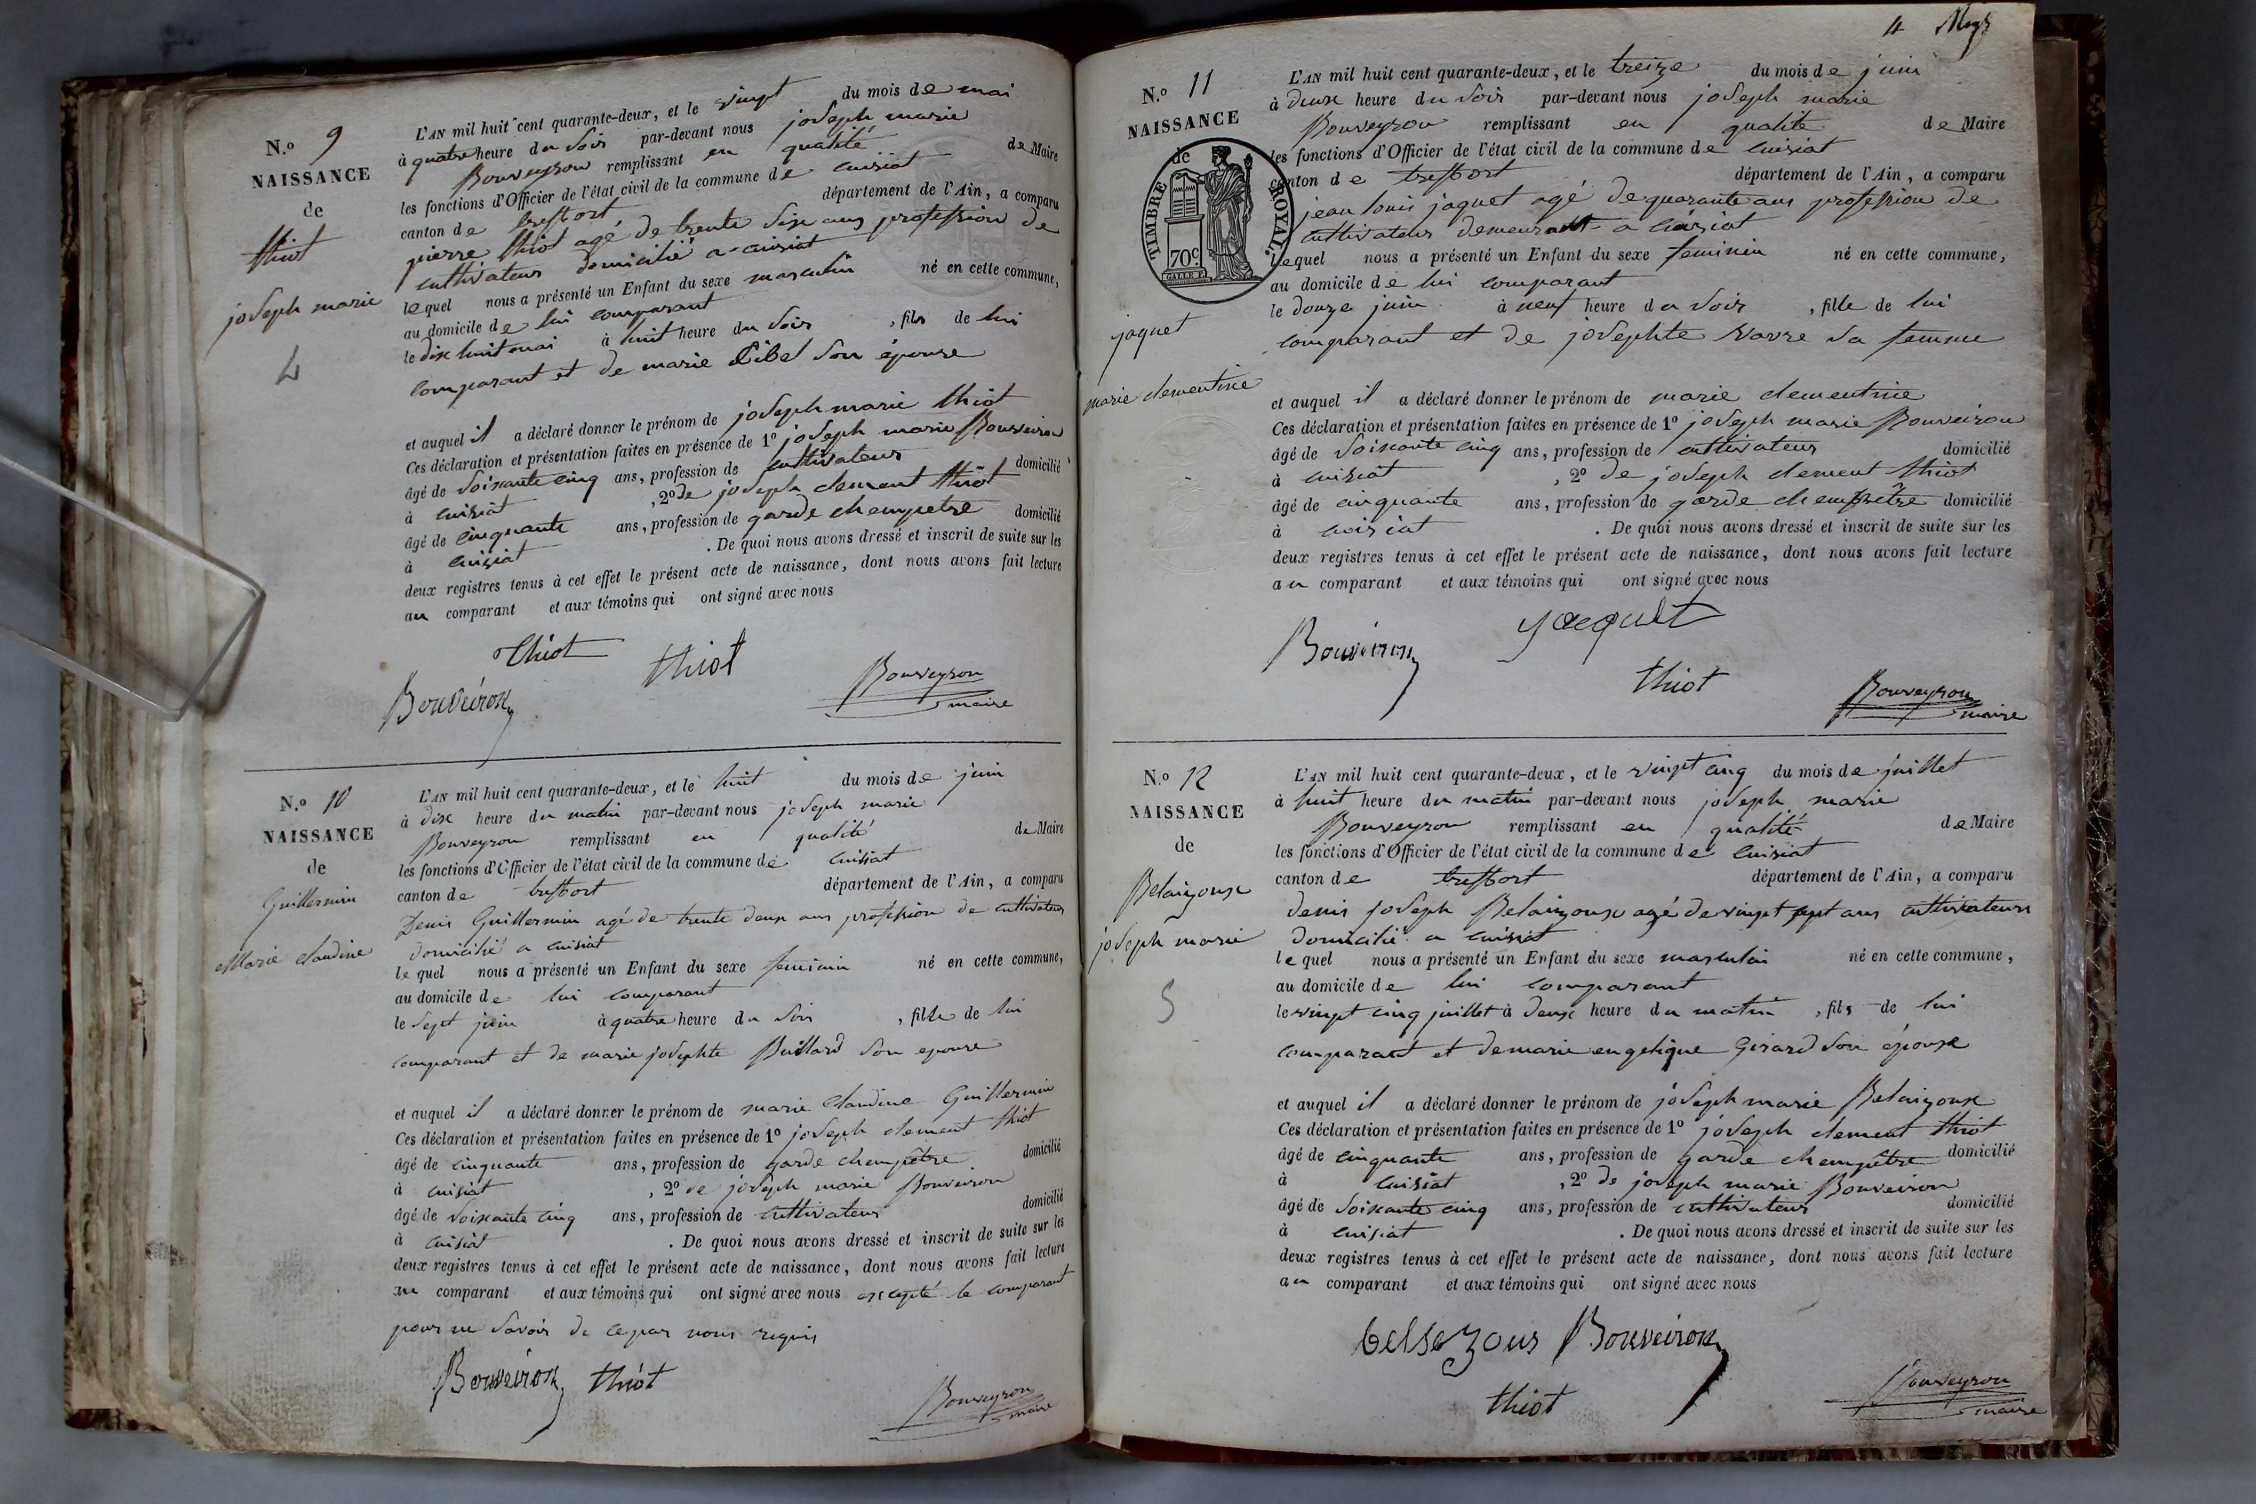 N.o 9
NAISSANCE
de
thiot
joseph marie
4
L'AN mil huit cent quarante-deux, et le vingt du mois de mai
à quatre heure du soir par-devant nous joseph marie
Bouveyron remplissant en qualité de Maire
les fonctions d'Officier de l'état civil de la commune de cuisiat
canton de treffort département de l'Ain, a comparu
pierre thiot agé de trente six ans profession de
cultivateur domicilié a cuisiat
lequel nous a présenté un Enfant du sexe masculin né en cette commune,
au domicile de lui comparant
le dix huit mai à huit heure du soir, fils de lui
comparant et de marie Libel son épouse
et auquel il a déclaré donner le prénom de joseph marie thiot
Ces déclaration et présentation faites en présence de 1o joseph marie Bouveiron
âgé de soixante cinq ans, profession de cultivateur domicilié
à cuisiat, 2o de joseph clement thiot
âgé de cinquante ans, profession de garde chempetre domicilié
à cuisiat. De quoi nous avons dressé et inscrit de suite sur les
deux registres tenus à cet effet le présent acte de naissance, dont nous avons fait lecture
au comparant et aux témoins qui ont signé avec nous
Thiot thiot
Bouveiron Bouveyron
maire
N.o 10
NAISSANCE
de
Guillermin
Marie claudine
L'AN mil huit cent quarante-deux, et le huit du mois de juin
à dix heure du matin par-devant nous joseph marie
Bouveyron remplissant en qualité de Maire
les fonctions d'Officier de l'état civil de la commune de cuisiat
canton de treffort département de l'Ain, a comparu
Denis Guillermin agé de trente deux ans profession de cultivateur
domicilié a cuisiat
lequel nous a présenté un Enfant du sexe feminin né en cette commune,
au domicile de lui comparant
le sept juin à quatre heure du soir, fille de lui
comparant et de marie josephte Buillard son epouse
et auquel il a déclaré donner le prénom de marie claudine Guillermin
Ces déclaration et présentation faites en présence de 1o joseph clement thiot
âgé de cinquante ans, profession de garde chempêtre domicilié
à cuisiat, 2o de joseph marie Bouveiron
âgé de soixante cinq ans, profession de cultivateur domicilié
à cuisiat. De quoi nous avons dressé et inscrit de suite sur les
deux registres tenus à cet effet le présent acte de naissance, dont nous avons fait lecture
au comparant et aux témoins qui ont signé avec nous excepté le comparant
pour ne savoir de ce par nous requis
Bouveiron thiot
Bouveyron
maire
4
N.o 11
NAISSANCE
de
TIMBRE ROYAL.
70c.
jaquet
marie clementine
L'AN mil huit cent quarante-deux, et le treize du mois de juin
à deux heure du soir par-devant nous joseph marie
Bouveyron remplissant en qualité de Maire
les fonctions d'Officier de l'état civil de la commune de cuisiat
canton de treffort département de l'Ain, a comparu
jean louis jaquet agé de quarante ans profession de
cultivateur demeurant a cuisiat
lequel nous a présenté un Enfant du sexe feminin né en cette commune,
au domicile de lui comparant
le douze juin à neuf heure du soir, fille de lui
comparant et de josephte Navre sa femme
et auquel il a déclaré donner le prénom de marie clementine
Ces déclaration et présentation faites en présence de 1o joseph marie Bouveiron
âgé de soixante cinq ans, profession de cultivateur domicilié
à cuisiat, 2o de joseph clement thiot
âgé de cinquante ans, profession de garde chempêtre domicilié
à cuisiat. De quoi nous avons dressé et inscrit de suite sur les
deux registres tenus à cet effet le présent acte de naissance, dont nous avons fait lecture
au comparant et aux témoins qui ont signé avec nous
Bouveiron Jacquet
thiot Bouveyron
maire
N.o 12
NAISSANCE
de
Belaizoux
joseph marie
5
L'AN mil huit cent quarante-deux, et le vingt cinq du mois de juillet
à huit heure du matin par-devant nous joseph marie
Bouveyron remplissant en qualité de Maire
les fonctions d'Officier de l'état civil de la commune de cuisiat
canton de treffort département de l'Ain, a comparu
denis joseph Belaizoux agé de vingt sept ans cultivateur
domicilié a cuisiat
lequel nous a présenté un Enfant du sexe masculin né en cette commune,
au domicile de lui comparant
le vingt cinq juillet à deux heure du matin, fils de lui
comparant et de marie engelique Girard son épouse
et auquel il a déclaré donner le prénom de joseph marie Belaizoux
Ces déclaration et présentation faites en présence de 1o joseph clement thiot
âgé de cinquante ans, profession de garde chempêtre domicilié
à cuisiat, 2o de joseph marie Bouveiron
âgé de soixante cinq ans, profession de cultivateur domicilié
à cuisiat. De quoi nous avons dressé et inscrit de suite sur les
deux registres tenus à cet effet le présent acte de naissance, dont nous avons fait lecture
au comparant et aux témoins qui ont signé avec nous
belsezous Bouveiron
thiot Bouveyron
maire